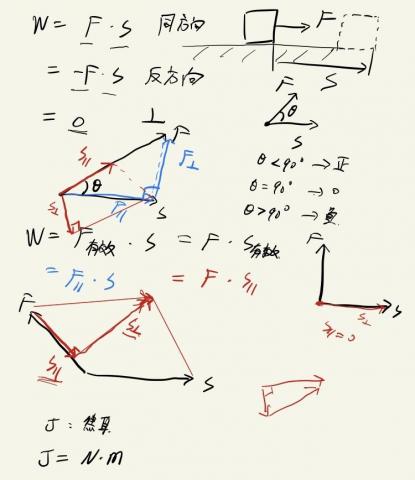 W = F · S 同方向
F
S
= -F · S 反方向
= 0 ⊥
F
θ
S
F
S∥
F⊥
θ
S⊥
F∥
S
θ<90° → 正
θ=90° → 0
θ>90° → 負
W = F有效 · S = F · S有效
= F∥ · S = F · S∥
F
S∥=0
S⊥
S
F
S⊥
S∥
S
J : 焦耳
J = N·m